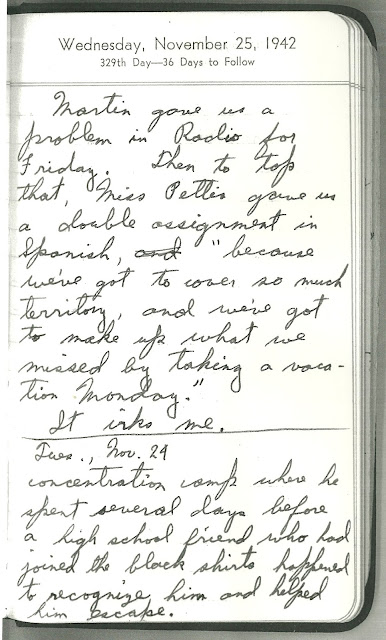 Wednesday, November 25, 1942
329th Day—36 Days to Follow
Martin gave us a
problem in Radio for
Friday. Then to top
that, Miss Pettis gave us
a double assignment in
Spanish, and "because
we've got to cover so much
territory, and we've got
to make up what we
missed by taking a vaca-
tion Monday."
It irks me.
Tues., Nov. 24
concentration camp where he
spent several days before
a high school friend who had
joined the black shirts happened
to recognize him and helped
him escape.